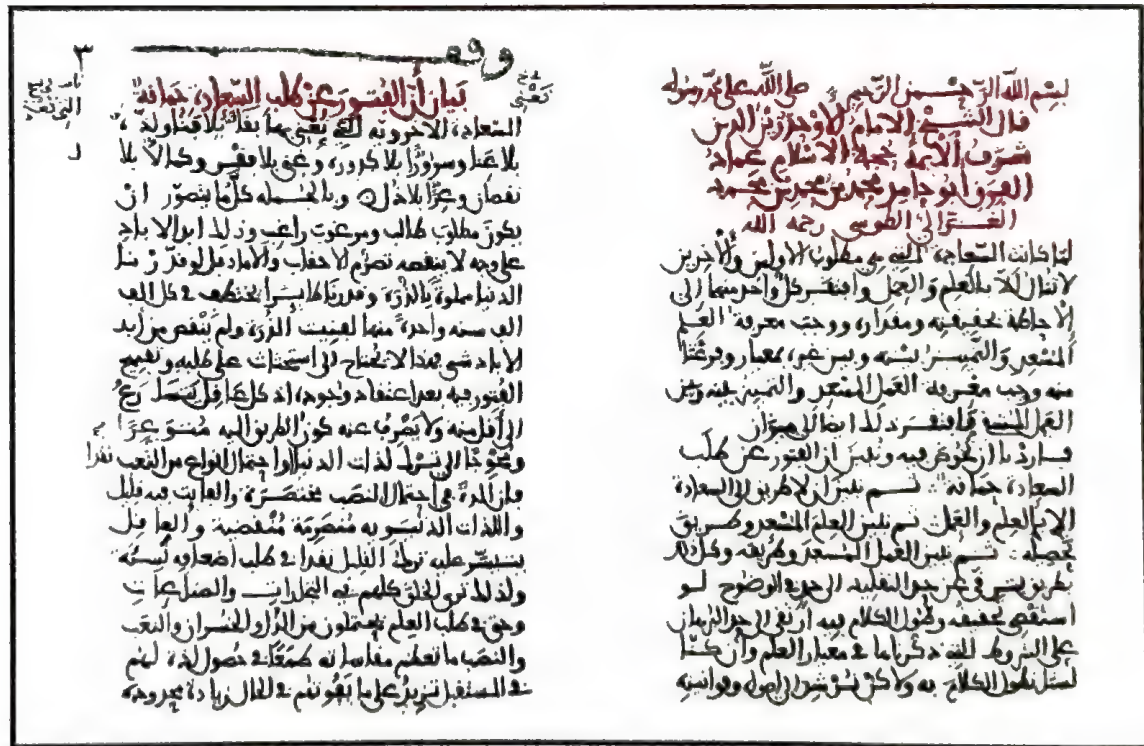 بسم الله الرحمن الرحيم صلى الله على محمد رسوله
قال الشيخ الامام الاوحد زين الدين
شرف الأئمة حجة الاسلام عماد
ابو حامد محمد بن محمد بن محمد
الغزالي الطوسي رحمه الله
لما كانت السعادة التي هي مطلوب الاولين والآخرين
لا تنال إلا بالعلم والعمل وافتقر كل واحد منهما الى
الإحاطة بحقيقته ومقداره ووجب معرفة العلم
المسعد والتمييز بينه وبين غيره بمعيار وفرغنا
منه وجب معرفة العمل المسعد والتمييز بينه وبين
العمل المشقي فافتقر ذلك ايضا الى ميزان
فاردنا ان نخوض فيه ونبين ان الفتور عن طلب
السعادة حماقة ثم نبين ان لا طريق الى السعادة
الا بالعلم والعمل ثم نبين العلم المسعد وطريق
تحصيله ثم نبين العمل المسعد وطريقه وكل ذلك
بطريق يترقى عن حد التقليد الى حد الوضوح لو
استقصى بحقيقته وطول الكلام فيه ارتقى الى حد البرهان
على الشروط التي ذكرناها في معيار العلم وان كنا
لسنا نطول الكلام به ولكن نشير الى اصوله وقوانينه
وقف
٣
بيان أن الفتور عن طلب السعادة حماقة
السعادة الاخروية التي يعنى بها بقاء بلا فناء ولذة
بلا عناء وسرورا بلا كدورة وغنى بلا فقر وكمالا بلا
نقصان وعزا بلا ذل وبالجملة كل ما يتصور ان
يكون مطلوب طالب ومرغوب راغب وذلك ابد الاباد
على وجه لا ينقصه تصرم الاحقاب والآماد بل لو قدرنا
الدنيا مملوة بالذرة وقدرنا طايرا يختطف في كل الف
الف سنه واحدة منها لفنيت الذرة ولم ينقص من ابد
الاباد شي فهذا لا يحتاج الى استحثاث على طلبه وتقبيح
الفتور فيه بعد اعتقاد وجوده اذ كل عاقل يتسارع
الى اقل منه ولا يصرف عنه كون الطريق اليه متوعرا
ومحوجا الى ترك لذات الدنيا واحتمال انواع من التعب نقدا
فان المدة في احتمال التعب منحصرة والفايت فيه قليل
واللذات الدنيوية منصرمة منقضية والعاقل
يتيسر عليه ترك القليل نقدا في طلب اضعافه نسيئة
ولذلك ترى الخلق كلهم في التجارات والصناعات
وحتى في طلب العلم يحتملون من الذل والخسران والتعب
والنصب ما تعظم مقاساته طمعا في حصول لذة لهم
في المستقبل تزيد على ما يفوتهم في الحال زيادة محدودة